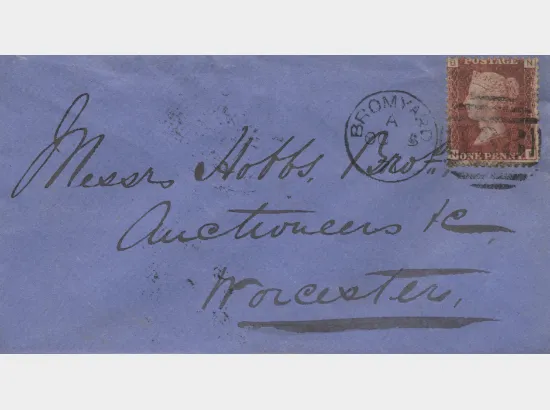 POSTAGE
ONE PENNY
BROMYARD
A
Messrs Hobbs, Bros.
Auctioneers &c,
Worcester,